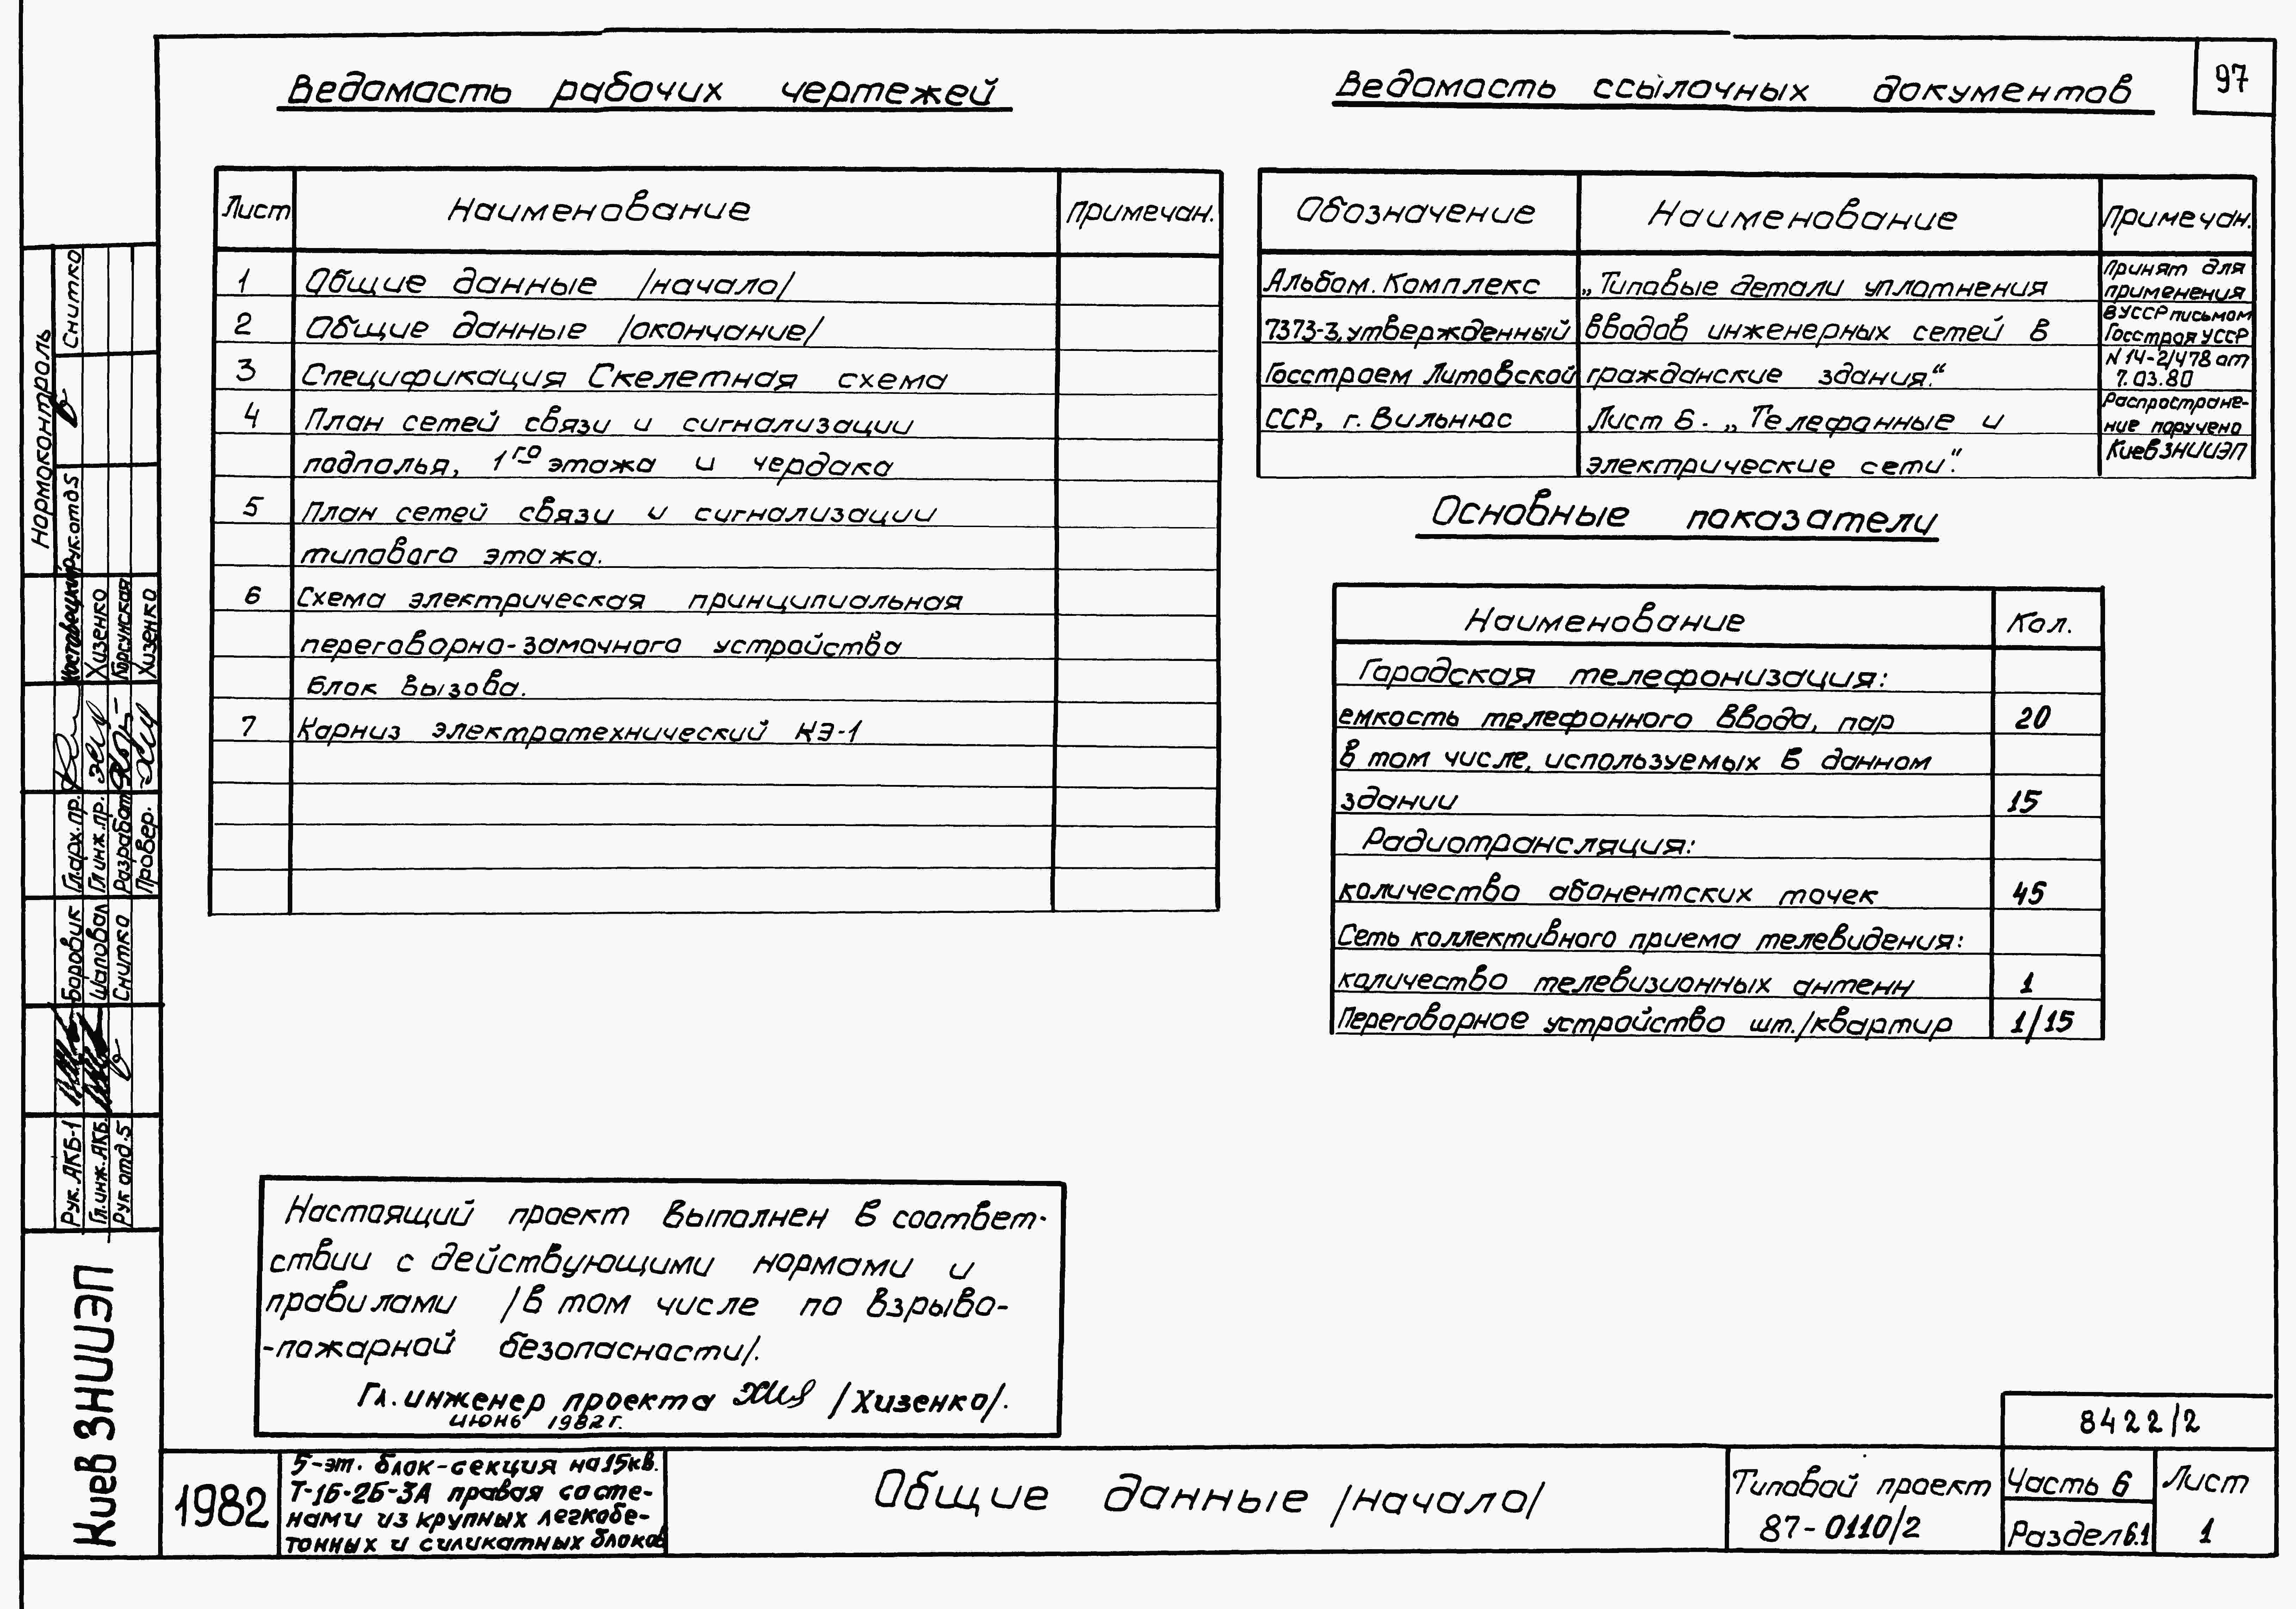 97
Ведомость рабочих чертежей
Лист Наименование Примечан.
1 Общие данные /начало/
2 Общие данные /окончание/
3 Спецификация Скелетная схема
4 План сетей связи и сигнализации
подполья, 1го этажа и чердака
5 План сетей связи и сигнализации
типового этажа.
6 Схема электрическая принципиальная
переговорно-замочного устройства
Блок вызова.
7 Карниз электротехнический КЭ-1
Ведомость ссылочных документов
Обозначение Наименование Примечан.
Альбом. Комплекс
7373-3, утвержденный
Госстроем Литовской
ССР, г. Вильнюс
„Типовые детали уплотнения
вводов инженерных сетей в
гражданские здания."
Лист 6. „Телефонные и
электрические сети".
Принят для
применения
в УССР письмом
Госстроя УССР
N 14-2/478 от
7.03.80
Распростране-
ние поручено
КиевЗНИИЭП
Основные показатели
Наименование Кол.
Городская телефонизация:
емкость телефонного ввода, пар 20
в том числе, используемых в данном
здании 15
Радиотрансляция:
количество абонентских точек 45
Сеть коллективного приема телевидения:
количество телевизионных антенн 1
Переговорное устройство шт./квартир 1/15
Настоящий проект выполнен в соответ-
ствии с действующими нормами и
правилами /в том числе по взрыво-
-пожарной безопасности/.
Гл. инженер проекта /Хизенко/.
июнь 1982 г.
Нормоконтроль
Рук. отд 5 Снитко
Гл. арх. пр.
Гл инж. пр. Хизенко
Разработ. Корсунская
Провер. Хизенко
Рук. АКБ-1 Боровик
Гл. инж. АКБ. Шаповал
Рук отд. 5 Снитко
Киев ЗНИИЭП
1982
5-эт. блок-секция на 15 кв.
Т-1Б-2Б-3А правая со сте-
нами из крупных легкобе-
тонных и силикатных блоков
Общие данные /начало/
Типовой проект
87-0110/2
8422/2
Часть 6
Раздел 6.1
Лист
1